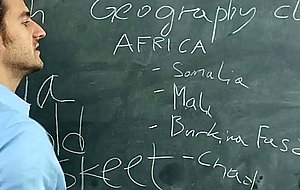 h Geography cl
AFRICA
- Somalia
- Mali
- Burkina Faso
- Chad
a
ld
sket